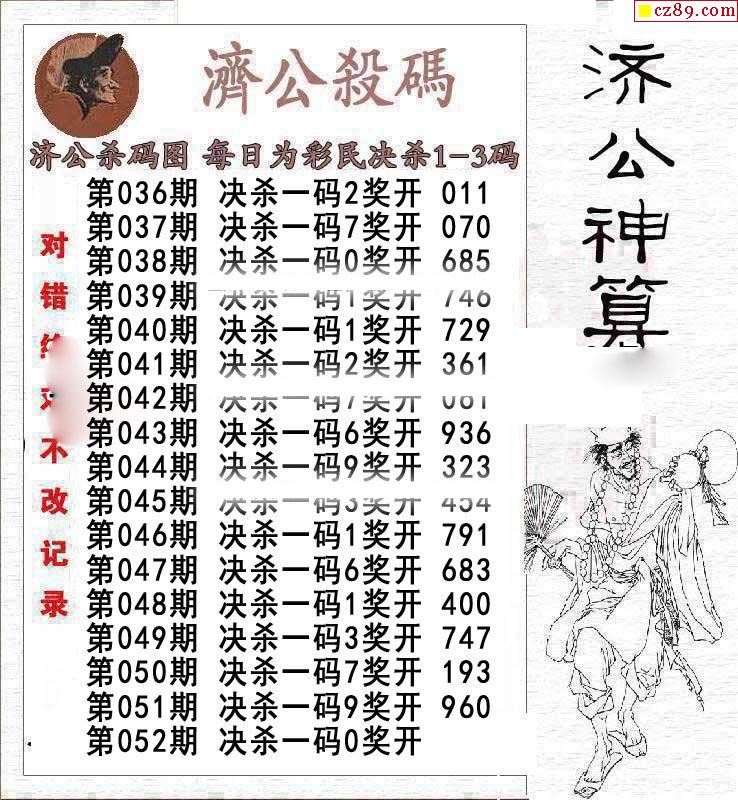 cz89.com
濟公殺碼
济公杀码图 每日为彩民决杀1-3码
第036期 决杀一码2奖开 011
第037期 决杀一码7奖开 070
第038期 决杀一码0奖开 685
第039期 决杀一码1奖开 746
第040期 决杀一码1奖开 729
第041期 决杀一码2奖开 361
第042期 决杀一码7奖开 061
第043期 决杀一码6奖开 936
第044期 决杀一码9奖开 323
第045期 决杀一码3奖开 454
第046期 决杀一码1奖开 791
第047期 决杀一码6奖开 683
第048期 决杀一码1奖开 400
第049期 决杀一码3奖开 747
第050期 决杀一码7奖开 193
第051期 决杀一码9奖开 960
第052期 决杀一码0奖开
对错 不改记录
济公神算